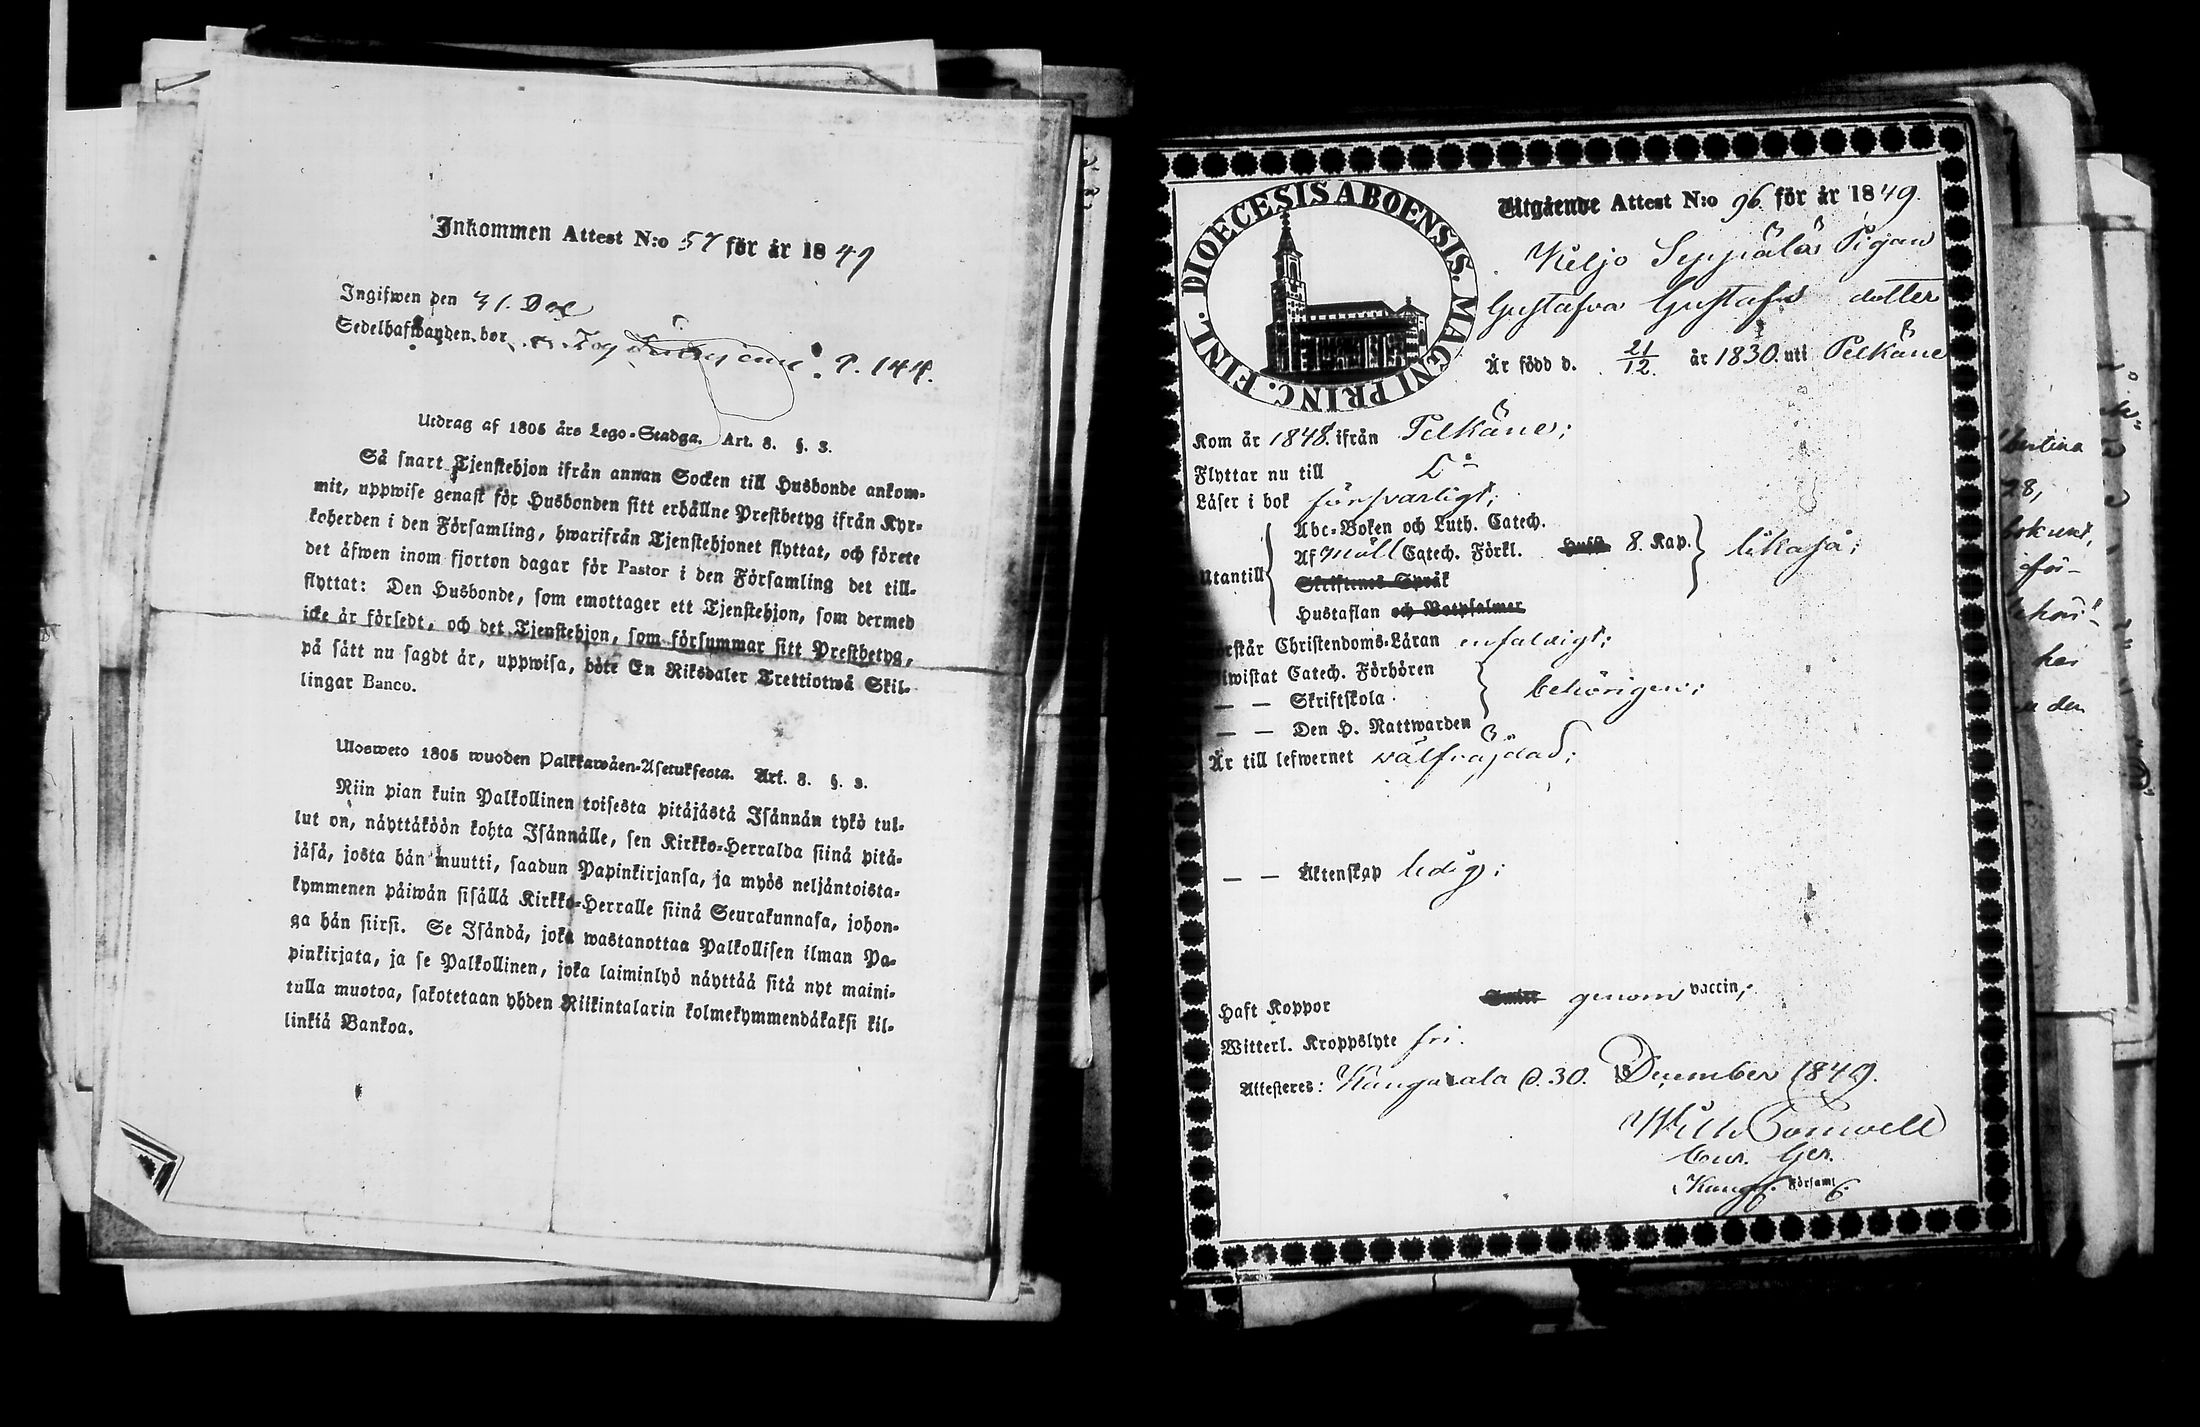 Inkommen Attest N:o 57 för år 1849
Ingifwen den 31. Dec
Sedelhafwanden bor P. 144.
Utdrag af 1805 års Lego-Stadga. Art. 8. §. 3.
Så snart Tjenstehjon ifrån annan Socken till Husbonde ankom-
mit, uppwise genast för Husbonden sitt erhållne Prestbetyg ifrån Kyr-
koherden i den Församling, hwarifrån Tjenstehjonet flyttat, och förete
det äfwen inom fjorton dagar för Pastor i den Församling det till-
flyttat: Den Husbonde, som emottager ett Tjenstehjon, som dermed
icke är försedt, och det Tjenstehjon, som försummar sitt Prestbetyg,
på sätt nu sagdt är, uppwisa, böte En Riksdaler Trettiotwå Skil-
lingar Banco.
Ulosweto 1805 wuoden Palkkawäen-Asetuksesta. Art. 8. §. 3.
Niin pian kuin Palkollinen toisesta pitäjästä Isännän tykö tul-
lut on, näyttäköön kohta Isännälle, sen Kirkko-Herralda siinä pitä-
jäsä, josta hän muutti, saadun Papinkirjansa, ja myös neljäntoista-
kymmenen päiwän sisällä Kirkko-Herralle siinä Seurakunnasa, johon-
ga hän siirsi. Se Isändä, joka wastanottaa Palkollisen ilman Pa-
pinkirjata, ja se Palkollinen, joka laiminlyö näyttää sitä nyt maini-
tulla muotoa, sakotetaan yhden Riikintalarin kolmekymmendäkaksi kil-
linkiä Bankoa.
DIOECESIS ABOENSIS. MAGNI PRINC. FINL.
Utgående Attest N:o 96. för år 1849.
Keljo Seppälä Pigan
Gustafva Gustafs dotter
Är född d. 21/12. år 1830. uti Pelkäne
Kom år 1848. ifrån Pelkäne;
Flyttar nu till
Läser i bok försvarligt;
Abc-Boken och Luth. Catech.
Af Catech. Förkl. 8. Kap. likaså;
Utantill
Skriftenes Språk
Hustaflan och Botpsalmer
rstår Christendoms-Läran enfaldigt;
iwistat Catech. Förhören
— — Skriftskola behörigen;
— — Den H. Nattwarden
Är till lefwernet wälfrägdad;
— — Äktenskap ledig;
Haft Koppor genom vaccin;
Witterl. Kroppslyte fri.
Attesteres: Kangasala d. 30. December 1849.
Församl